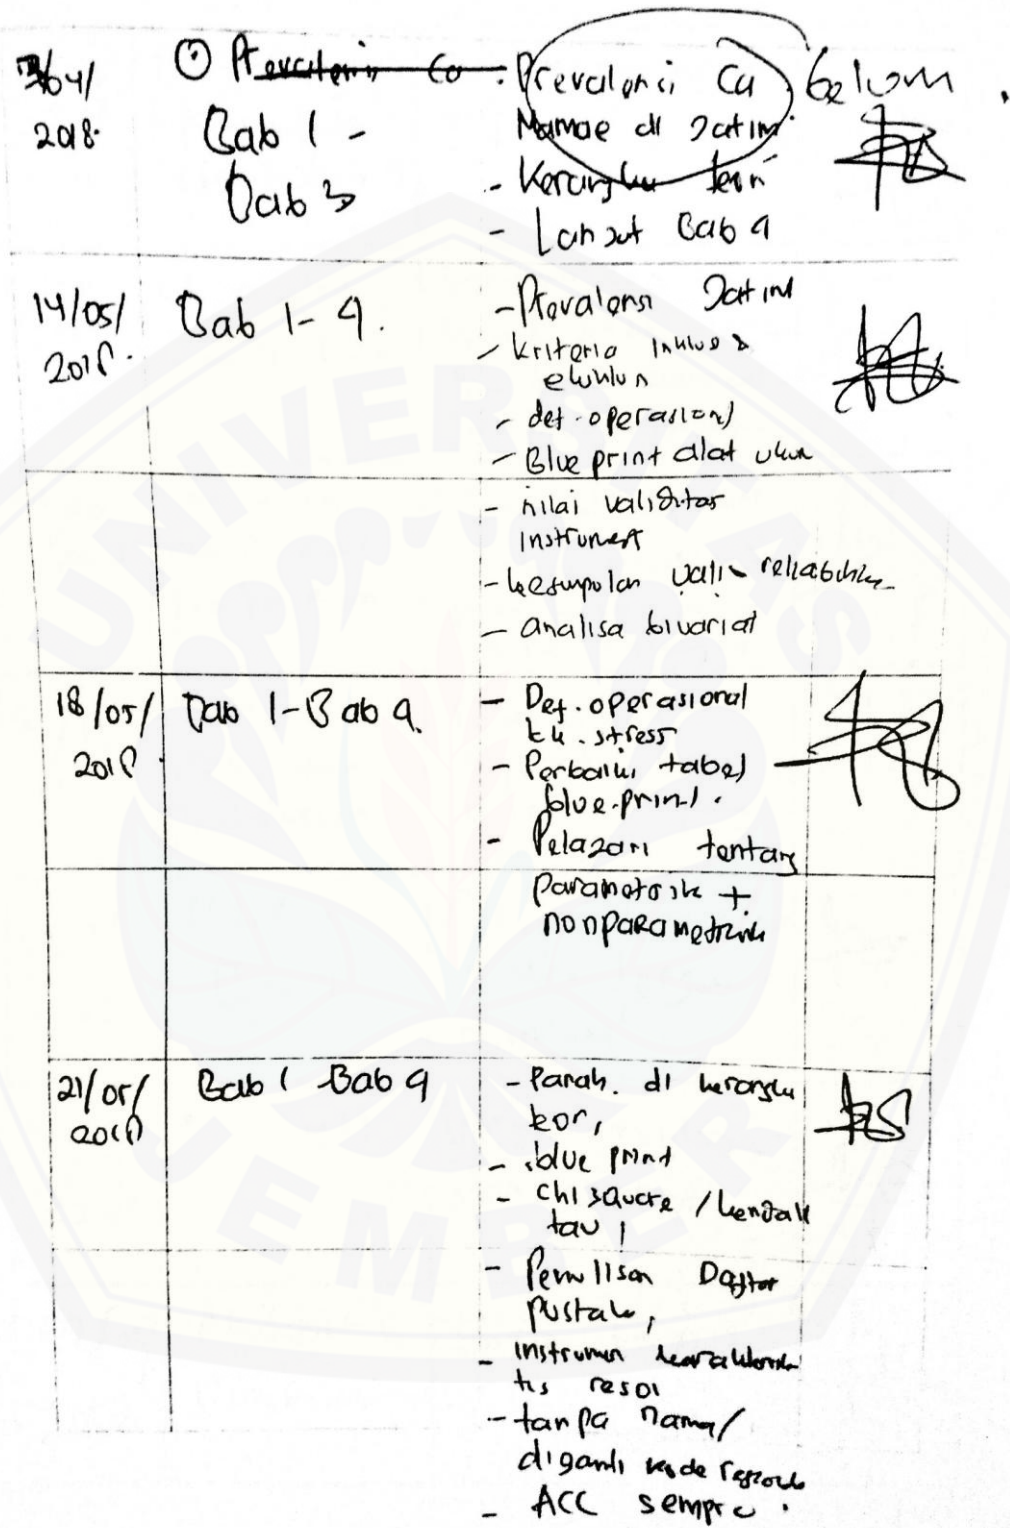 04/
2018.
① Prevalensi Ca
Bab 1 -
Bab 3
- Prevalensi Ca
Mamae di Jatim.
belum.
- Kerangka teori
- Lanjut Bab 4
14/05/
2018.
Bab 1-4.
- Prevalensi Jatim
- Kriteria inklusi &
eksklusi
- def. operasional
- Blue print alat ukur
- nilai validitas
instrumen
- kesimpulan vali - reliabilitas
- analisa bivariat
18/05/
2018.
Bab 1-Bab 4.
- Def. operasional
tk. stress
- Perbaiki tabel
blue print.
- Pelajari tentang
parametrik +
nonparametrik
21/05/
2018
Bab 1 - Bab 4
- Panah. di kerangka
kon,
- blue print
- chi square / kendall
tau,
- Penulisan Daftar
pustaka,
- instrumen karakteris
tis respon
- tanpa nama/
diganti kode respond
- ACC sempro.
UNIVERSITAS
JEMBER